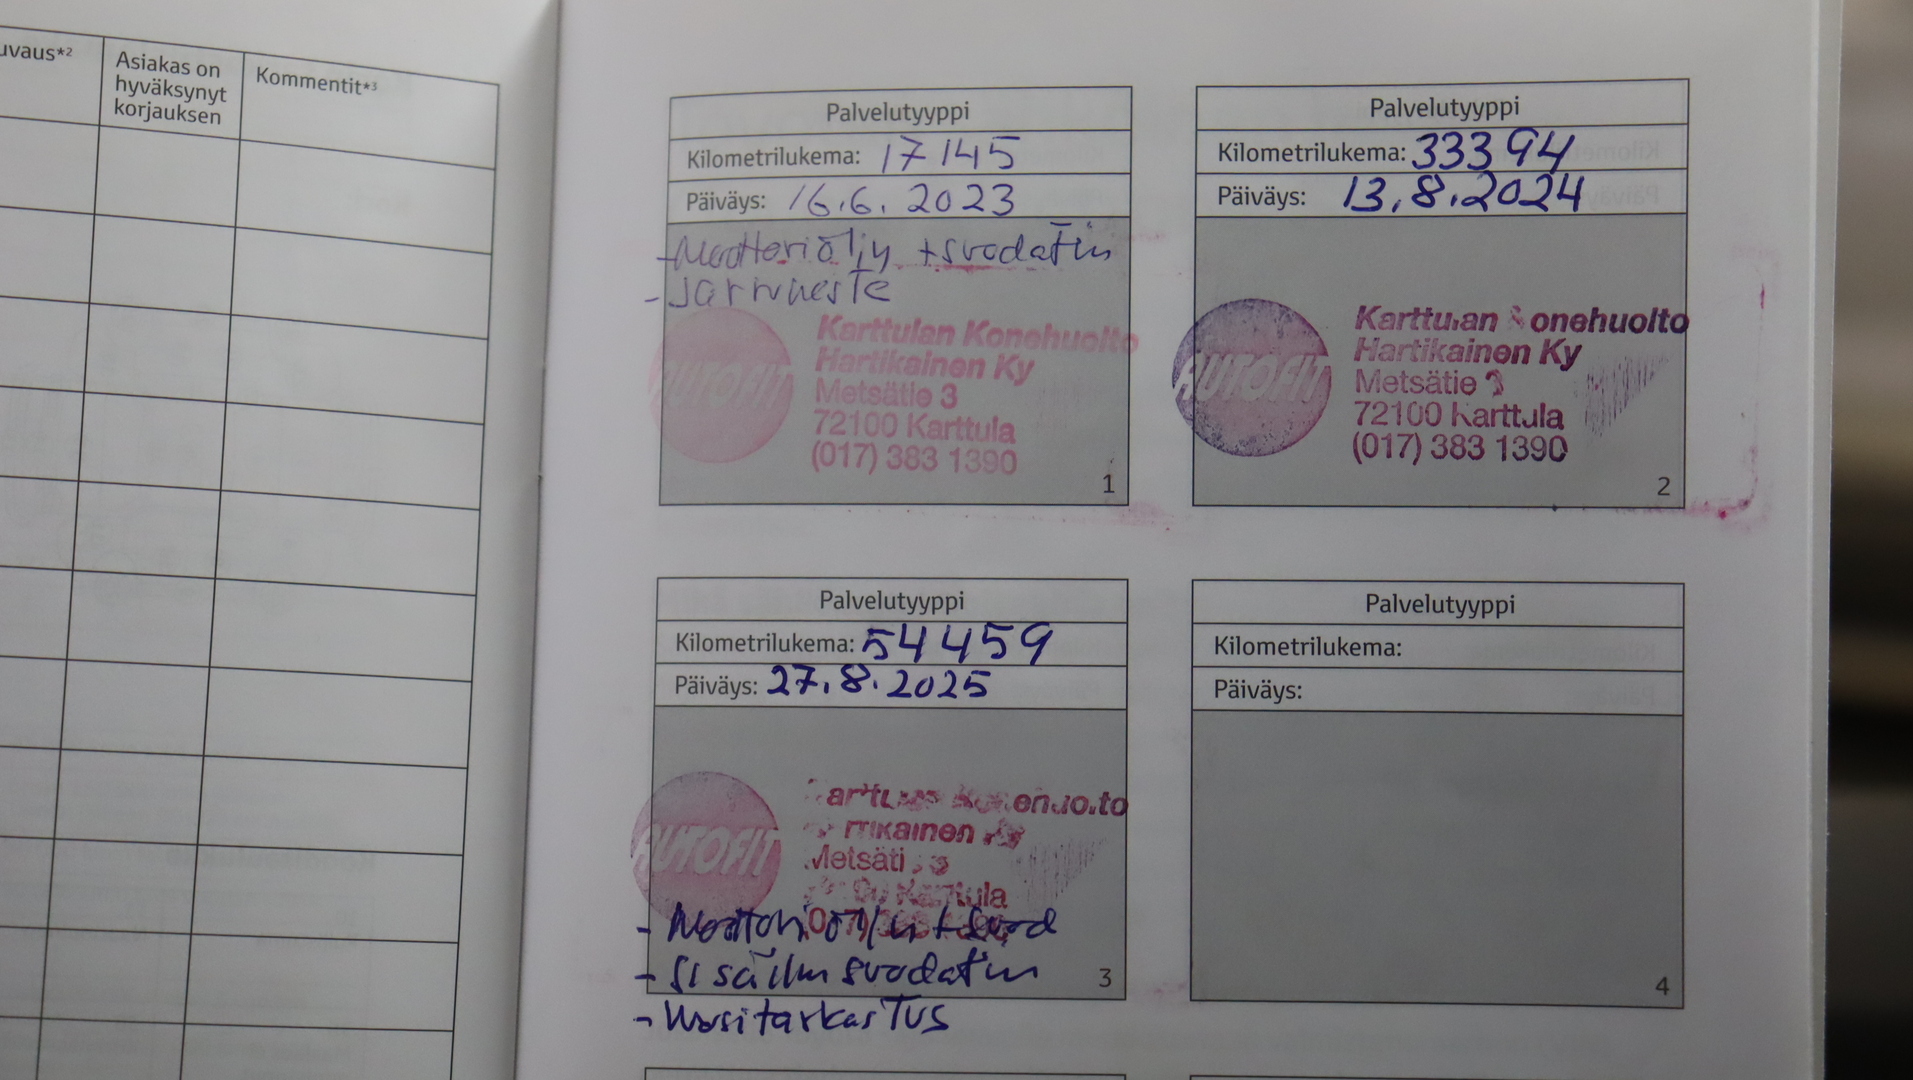 uvaus*2
Asiakas on
hyväksynyt
korjauksen
Kommentit*3
Palvelutyyppi
Kilometrilukema: 17145
Päiväys: 16.6. 2023
- Moottoriöljy + suodatin
- Jarruneste
AUTOFIT
Karttulan Konehuolto
Hartikainen Ky
Metsätie 3
72100 Karttula
(017) 383 1390
1
Palvelutyyppi
Kilometrilukema: 33394
Päiväys: 13.8.2024
AUTOFIT
Karttulan Konehuolto
Hartikainen Ky
Metsätie 3
72100 Karttula
(017) 383 1390
2
Palvelutyyppi
Kilometrilukema: 54459
Päiväys: 27.8.2025
AUTOFIT
- Moottoriöljy + suod
- Sisäilm suodatin
- Vuositarkastus
3
Palvelutyyppi
Kilometrilukema:
Päiväys:
4